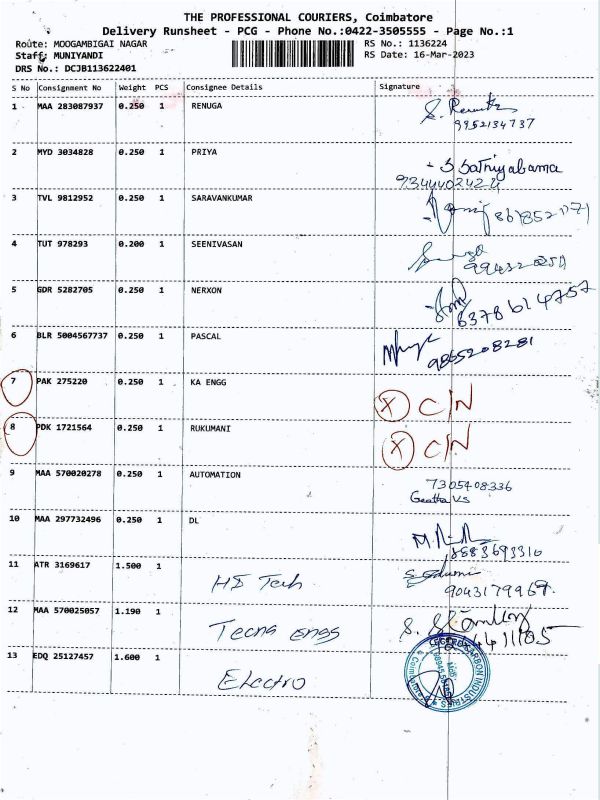 THE PROFESSIONAL COURIERS, Coimbatore
Delivery Runsheet - PCG - Phone No.:0422-3505555 - Page No.:1
Route: MOOGAMBIGAI NAGAR RS No.: 1136224
Staff: MUNIYANDI RS Date: 16-Mar-2023
DRS No.: DCJB113622401
S No Consignment No Weight PCS Consignee Details Signature
1 MAA 283087937 0.250 1 RENUGA
9952134737
2 MYD 3034828 0.250 1 PRIYA
S Sathiyabama
9344402424
3 TVL 9812952 0.250 1 SARAVANKUMAR
4 TUT 978293 0.200 1 SEENIVASAN
5 GDR 5282705 0.250 1 NERXON
6378614757
6 BLR 5004567737 0.250 1 PASCAL
9865208281
7 PAK 275220 0.250 1 KA ENGG
X C/N
8 PDK 1721564 0.250 1 RUKUMANI
X C/N
9 MAA 570020278 0.250 1 AUTOMATION
7305408336
Geetha VS
10 MAA 297732496 0.250 1 DL
8883693310
11 ATR 3169617 1.500 1
HI Tech
9043179969
12 MAA 570025057 1.190 1
Tecna engg
13 EDQ 25127457 1.600 1
Electro